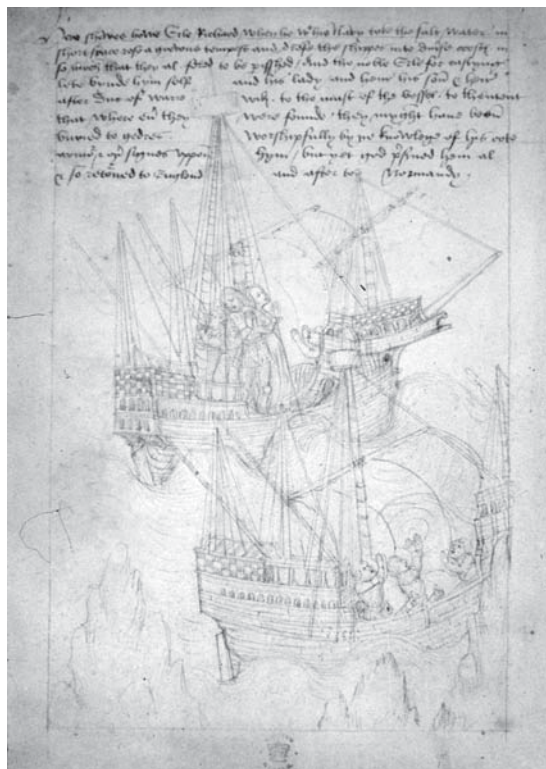 shewes howe Erle Richard when he w his lady toke the salt water in
short space rose a grevous tempest and drofe the shippes into diverse coostys in
so moch that they al fered to be pisshed / And the noble Erle forcastyng
lete bynde hym self and his lady and henr his son & heir
after Duc of Warre wyk . to the mast of the vessel . to thentent
that where ev they were founde / they myght have been
buryed to gedres worshipfully by ye knowlege of his cote
armor & oyr signes uppon hym / but yet god p̄served hem al
& so retorned to Englond and after to Normandy .